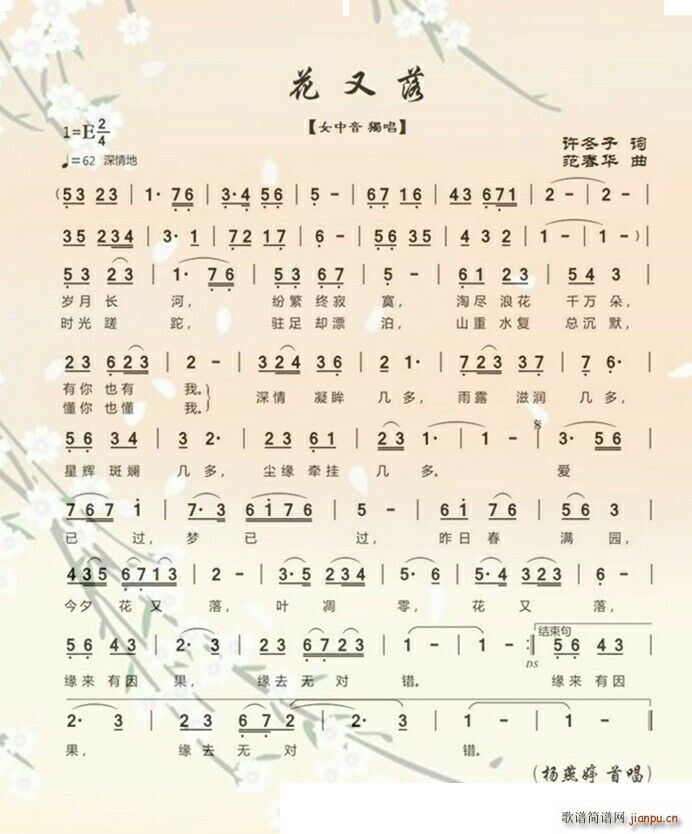 花又落
【女中音 獨唱】
1=E 2/4
♩=62 深情地
许冬子 词
范春华 曲
(53 23 | 1· 76 | 3·4 56 | 5 - | 67 16 | 43 671 | 2 - | 2 - |
35 234 | 3· 1 | 72 17 | 6 - | 56 35 | 4 3 2 | 1 - | 1 -) |
53 23 | 1· 76 | 53 67 | 5 - | 61 23 | 54 4 |
岁月长 河, 纷繁终寂 寞, 淘尽浪花 千万朵,
时光蹉 跎, 驻足却漂 泊, 山重水复 总沉默,
23 623 | 2 - | 324 36 | 2 · | 723 37 | 6 · |
有你也有 我。 深情 凝眸 几多, 雨露 滋润 几多,
懂你也懂 我。
56 34 | 3 2· | 23 61 | 23 1· | 1 - | 56 · |
星辉斑斓 几多, 尘缘牵挂 几多。 爱
767 1 | 7·3 | 6161 | 2 - | 6171 | 5 67 |
已过,梦已过, 昨日春满园,
435 6713 | 2 - | 3·5 223 | 5· 5 | 5·4 323 | 2 - |
今夕花又落, 叶凋零, 花又落,
结束句
56 43 | 3· 3 | 23 6723 | 1 - | 1 - :‖ 56 43 |
D.S.
缘来有因果, 缘去无对错。 缘来有因
2· 3 | 23 672 | 2 3 | 1 - | 1 - ‖
果, 缘去无对错。
(杨燕婷 首唱)
歌谱简谱网 jianpu.cn